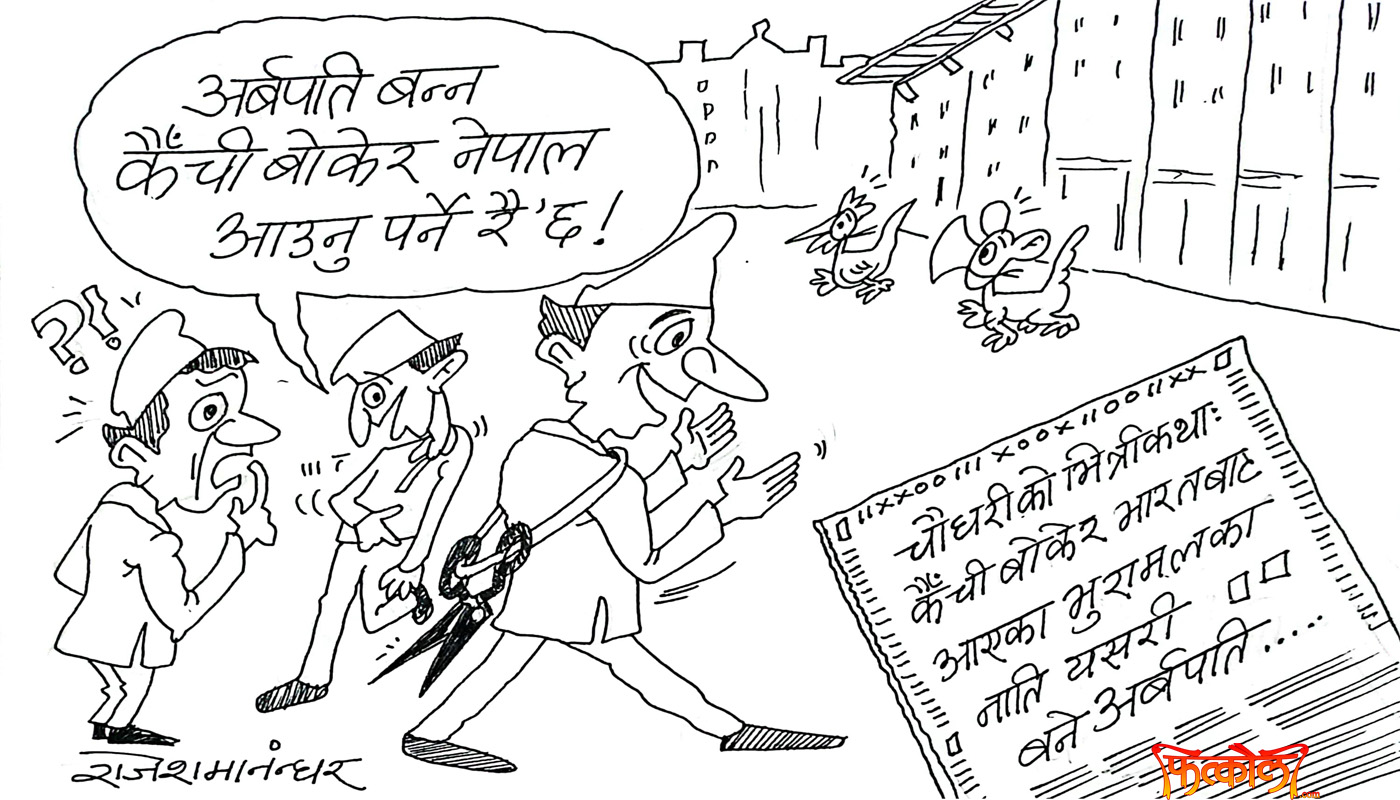 अर्बपति बन्न
कैँची बोकेर नेपाल
आउनु पर्ने रै'छ!
?!
चौधरीको भित्रीकथाः
कैँची बोकेर भारतबाट
आएका भुरामलका
नाति यसरी
बने अर्बपति.....
राजेशमानन्धर
फत्कौलो
.com